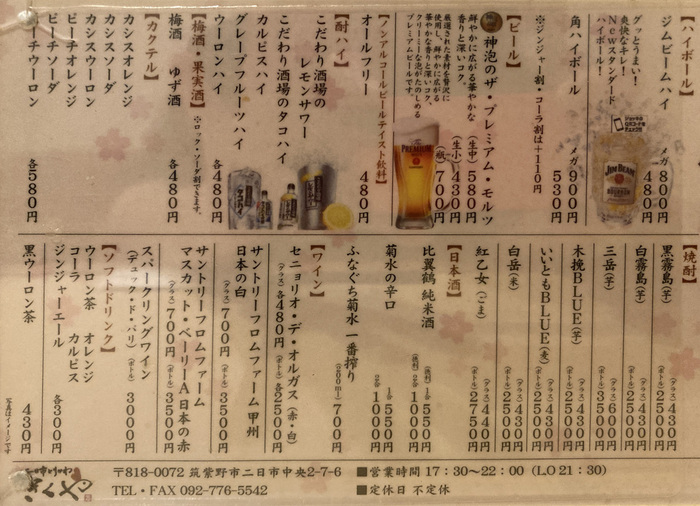 【ハイボール】
ジムビームハイ 480円
メガ 800円
グッとうまい!
爽快なキレ!
Newスタンダード
ハイボール!
角ハイボール 530円
メガ 900円
※ジンジャー割・コーラ割は+110円
【ビール】
神泡のザ・プレミアム・モルツ
(生中) 580円
(生小) 430円
(瓶) 700円
鮮やかに広がる華やかな
香りと深いコク。
厳選された素材を贅沢に
使用し、鮮やかに広がる
華やかな香りと深いコク、
クリーミーな泡がたのしめる
プレミアムビールです。
【ノンアルコールビールテイスト飲料】
オールフリー 480円
【酎ハイ】
こだわり酒場の
レモンサワー
こだわり酒場のタコハイ
カルピスハイ
グレープフルーツハイ
ウーロンハイ
各480円
【梅酒・果実酒】
※ロック・ソーダ割できます。
梅酒 ゆず酒
各480円
【カクテル】
カシスオレンジ
カシスソーダ
カシスウーロン
ピーチオレンジ
ピーチソーダ
ピーチウーロン
各580円
【焼酎】
黒霧島(芋) (グラス) 400円
(ボトル) 2500円
白霧島(芋) (グラス) 400円
(ボトル) 2500円
三岳(芋) (グラス) 600円
(ボトル) 3500円
木挽BLUE(芋) (グラス) 430円
(ボトル) 2500円
いいともBLUE(麦) (グラス) 400円
(ボトル) 2500円
白岳(米) (グラス) 400円
(ボトル) 2500円
紅乙女(ごま) (グラス) 430円
(ボトル) 2750円
【日本酒】
比翼鶴 純米酒 1合 550円
(徳利) 2合 1000円
菊水の辛口 1合 550円
2合 1000円
ふなぐち菊水 一番搾り 700円
【ワイン】
セニョリオ・デ・オルガス(赤・白)
(グラス) 各480円 (ボトル) 各2500円
サントリーフロムファーム 甲州
日本の白
(グラス) 700円 (ボトル) 3500円
サントリーフロムファーム
マスカット・ベーリーA日本の赤
(グラス) 700円 (ボトル) 3500円
スパークリングワイン
(デュック・ド・パリ) (ボトル) 3000円
【ソフトドリンク】
ウーロン茶 オレンジ
コーラ カルピス
ジンジャーエール
各300円
黒ウーロン茶 430円
写真はイメージです
〒818-0072 筑紫野市二日市中央2-7-6 ■営業時間 17:30〜22:00 (LO 21:30)
TEL・FAX 092-776-5542 ■定休日 不定休